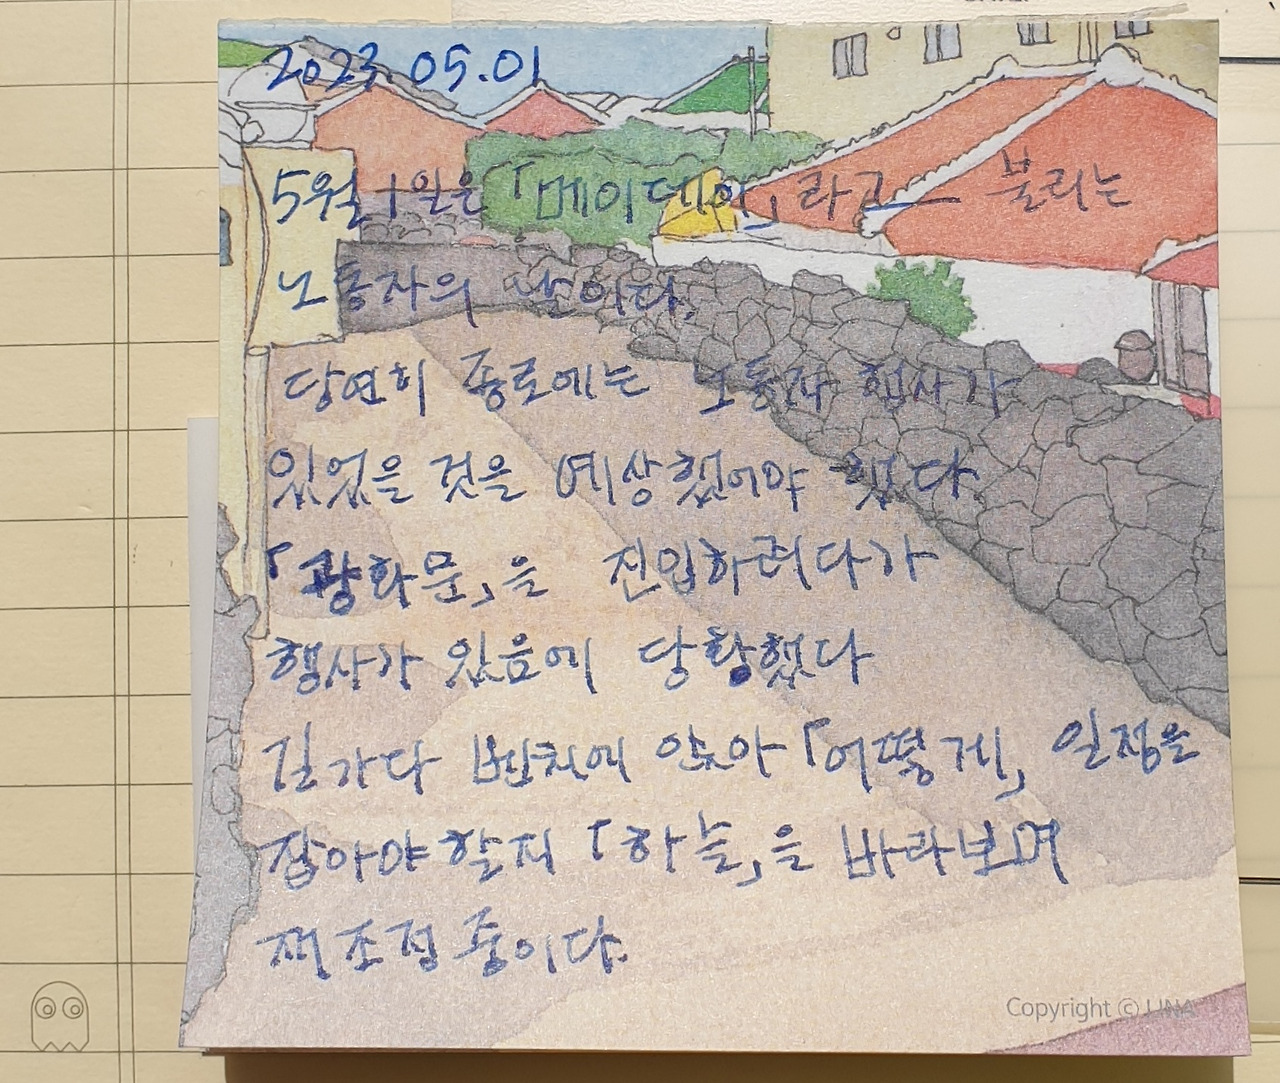 2023. 05.01
5월 1일은 「메이데이」라고 불리는
노동자의 날이다.
당연히 종로에는 노동자 행사가
있었을 것을 예상했어야 했다
「광화문」을 진입하려다가
행사가 있음에 당황했다
길가다 벤치에 앉아 「어떻게」 일정을
잡아야 할지 「하늘」을 바라보며
재조정 중이다.
Copyright ©